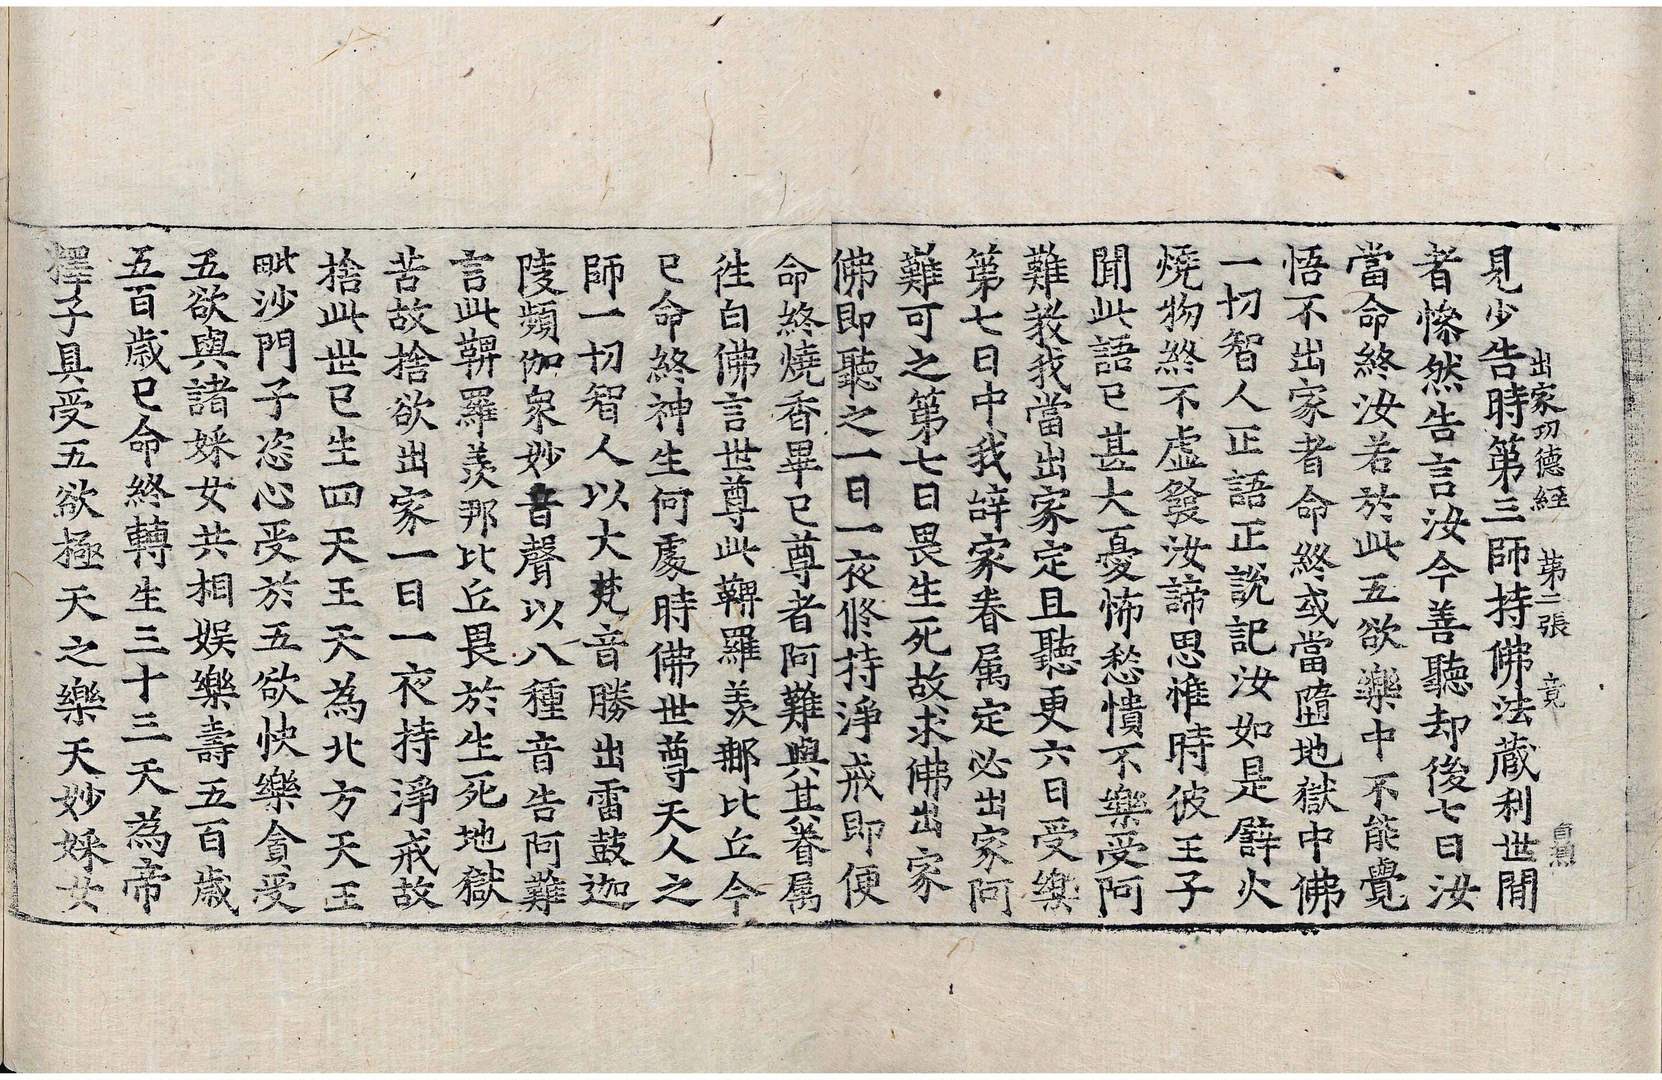 出家功德経　第二張　竟
見少告時第三師持佛法蔵利世閒
者慘然告言汝今善聽却後七日汝
當命終汝若於此五欲樂中不能覺
悟不出家者命終或當墮地獄中佛
一切智人正語正說記汝如是譬火
燒物終不虛發汝諦思惟時彼王子
聞此語已甚大憂怖愁憒不樂受阿
難教我當出家定且聽更六日受樂
第七日中我辝家眷属定必出家阿
難可之第七日畏生死故求佛出家
佛即聽之一日一夜修持淨戒即便
命終燒香畢已尊者阿難與其眷属
徃白佛言世尊此鞞羅羨那比丘今
已命終神生何處時佛世尊天人之
師一切智人以大梵音勝出雷鼓迦
陵頻伽衆妙音聲以八種音告阿難
言此鞞羅羨那比丘畏於生死地獄
苦故捨欲出家一日一夜持淨戒故
捨此世已生四天王天為北方天王
毗沙門子恣心受於五欲快樂貪受
五欲與諸婇女共相娱樂壽五百歲
五百歲已命終轉生三十三天為帝
釋子具受五欲極天之樂天妙婇女